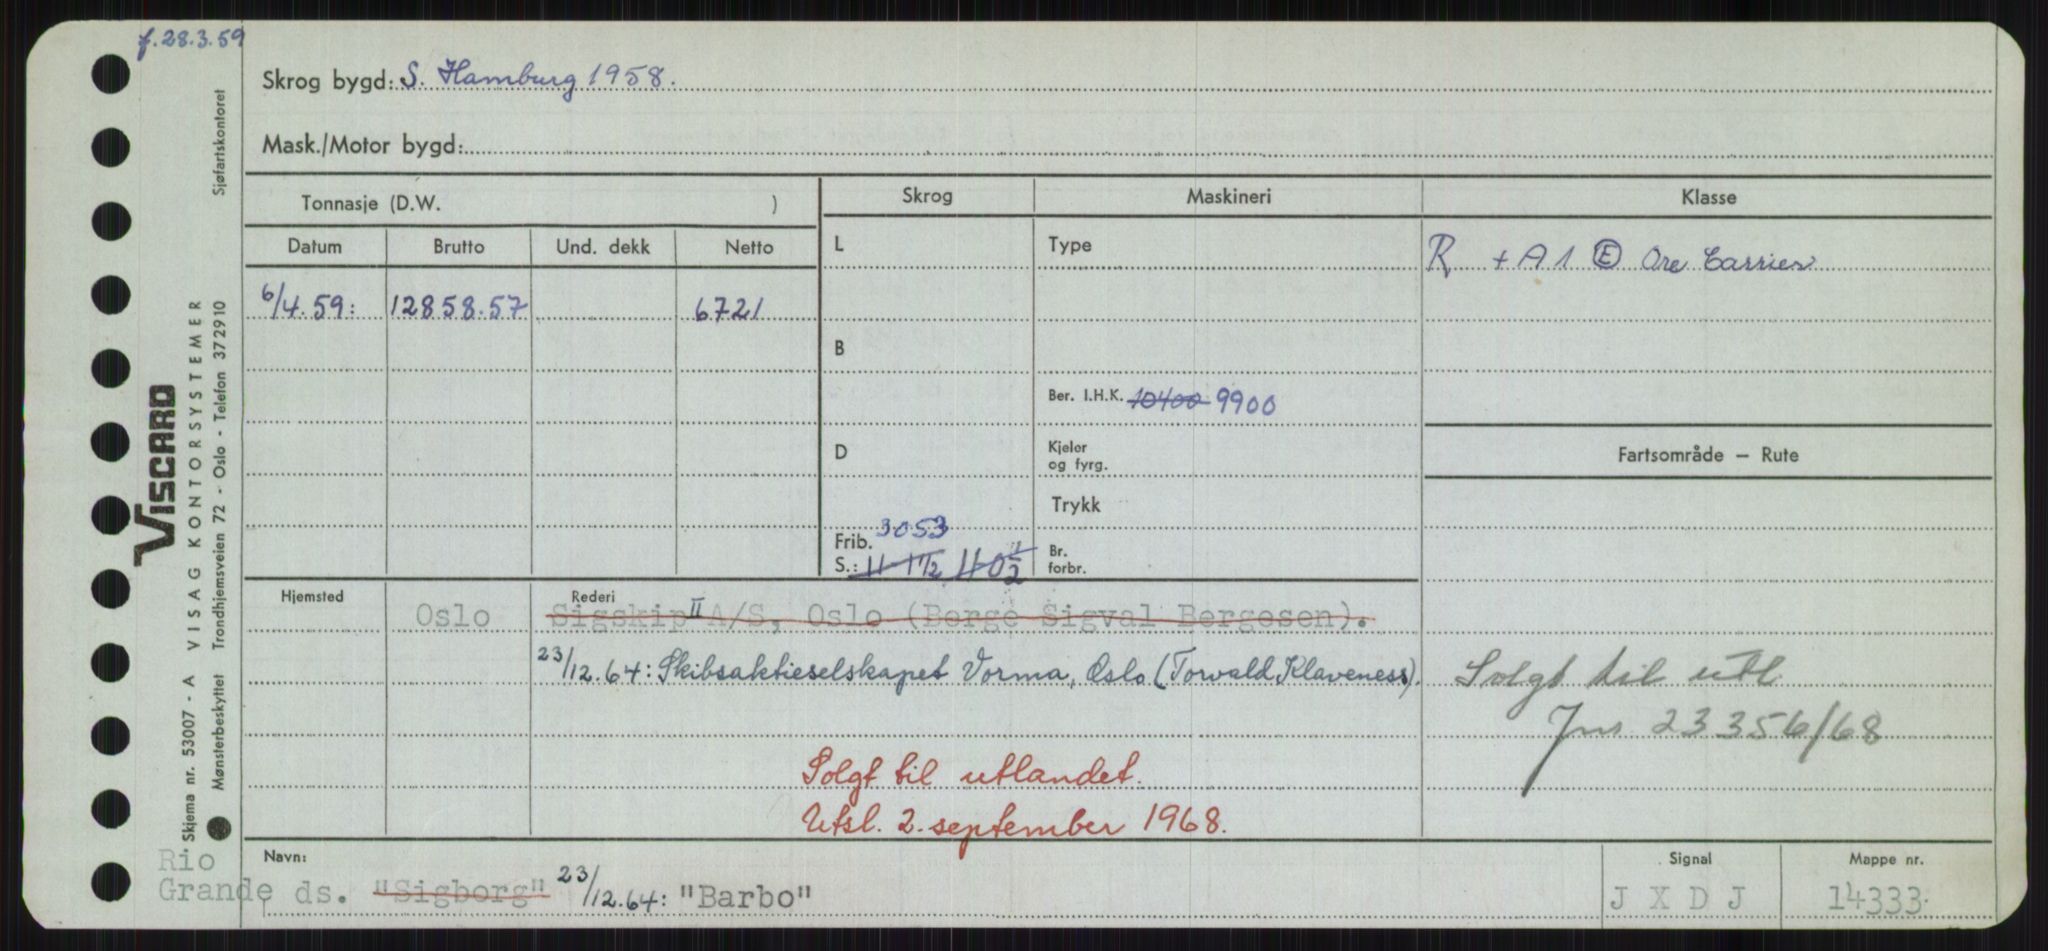 f. 28.3.59
Skrog bygd: S. Hamburg 1958.
Mask./Motor bygd:
Tonnasje (D.W. )
Skrog
Maskineri
Klasse
Datum
Brutto
Und. dekk
Netto
L
Type
R + A 1 Ⓔ Ore Carrier
6/4.59:
12858.57
6721
B
Ber. I.H.K. 10400 9900
D
Kjeler
og fyrg.
Fartsområde – Rute
Trykk
Frib. 3053
S.: 11-11/2 11-0 1/2
Br.
forbr.
Hjemsted
Oslo
Rederi
Sigskip II A/S, Oslo (Berge Sigval Bergesen).
23/12.64: Skibsaktieselskapet Vorma, Oslo (Torvald Klaveness).
Solgt til utl.
Jnr 23356/68
Solgt til utlandet.
Utsl. 2. september 1968.
Navn:
Rio
Grande ds. "Sigborg" 23/12.64: "Barbo"
Signal
J X D J
Mappe nr.
14333
VISCARD
VISAG KONTORSYSTEMER
Skjema nr. 53007 - A
Mønsterbeskyttet
Trondhjemsveien 72 - Oslo - Telefon 372910
Sjøfartskontoret